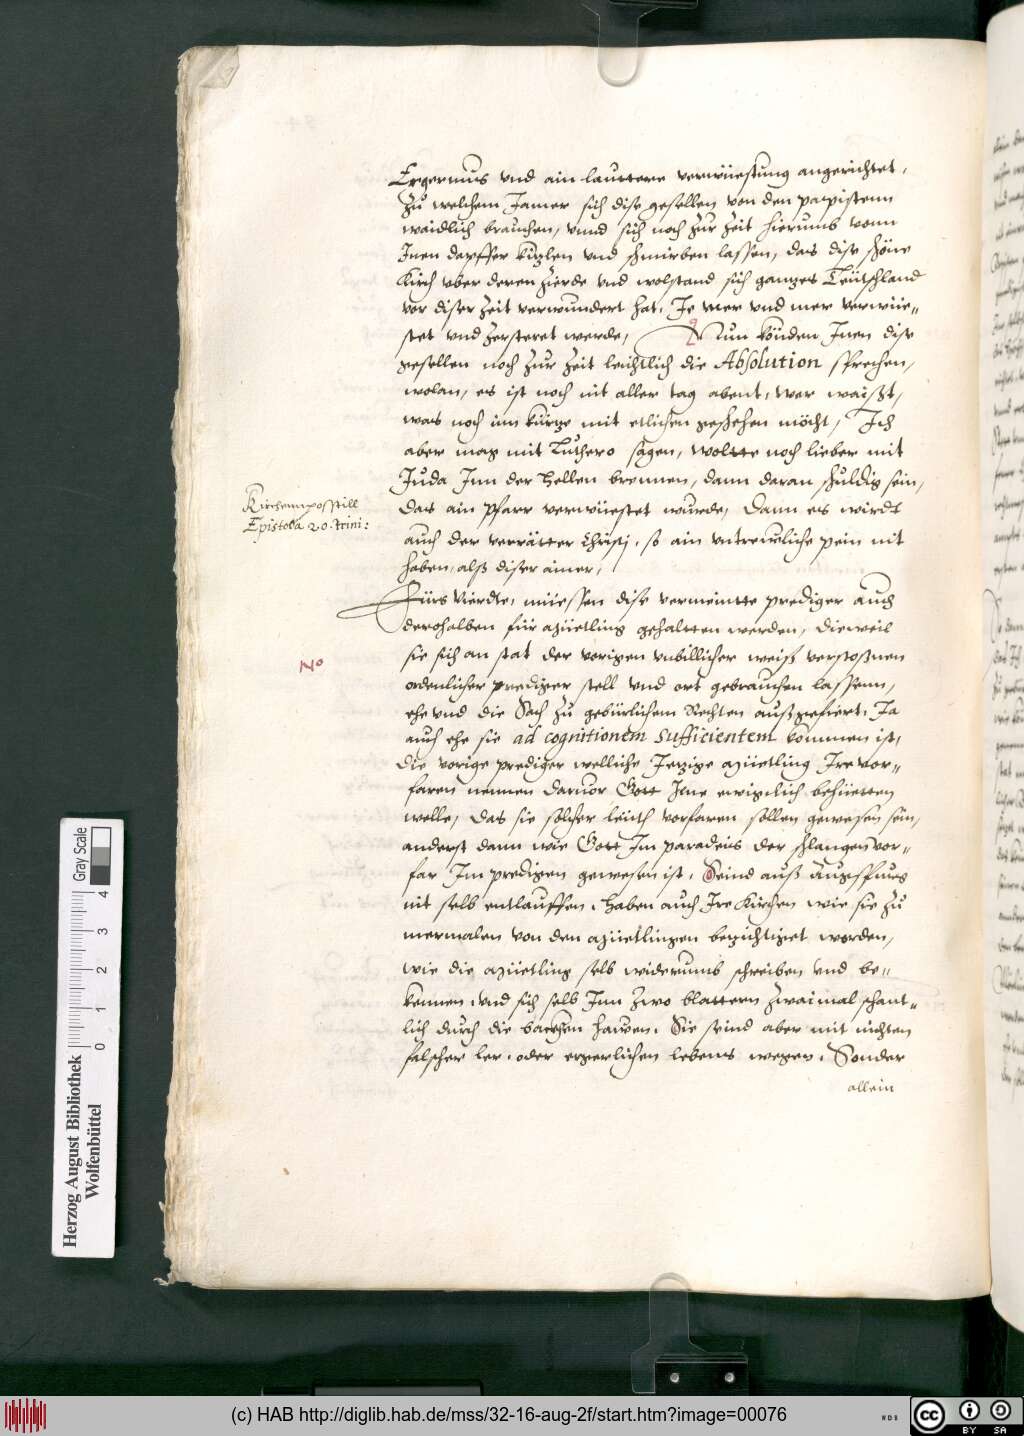 Ergernus vnd ain lauttere verwüestung angerichtet,
zu welchem Jamer sich dise gesellen von den papistenn
waidlich brauchen, vnnd sich noch zur zeit hierumb vonn
Jnen dapffer kützlen vnd schmirben lassen, das dise schöne
Kirch vber deren zierde vnd wolstand sich gantzes Teütschland
vor diser zeit verwundert hat, Je mer vnd mer verwüe=
stet vnd zersteret werde, Nun könden Jnen dise
gesellen noch zur zeit leichtlich die Absolution sprechen,
wolan, es ist noch nit aller tag abent, wer waißt,
was noch inn kürtze mit etlichen geschehen möcht, Jch
aber mag mit Luthero sagen, wollte noch lieber mit
Juda Jnn der Hellen brennen, dann daran schuldig sein,
das ain Pfarr verwüestet wurde, Dann es wirdt
auch der verrätter Christj, so ain vntrewliche pein nit
haben, alß diser ainer,
Kirchennposstill
Epistola 20. trini:
Fürs Vierdte, müessen dise vermeintte prediger auch
derohalben für Miietling gehaltten werden, dieweil
sie sich an stat der vorigen vnbillicher weiß verstoßnen
No
ordenlicher prediger stell vnd ort gebrauchen lassenn,
ehe vnd die Sach zu gebürlichem Rechten außgefiert, Ja
auch ehe sie ad cognitionem sufficientem kommen ist,
die vorige prediger welliche Jetzige Miietling Jre vor=
faren nennen daruor Gott Jene ewigclich behüetten
welle, das sie solcher leüth vorfaren sollen gewesen sein,
anderst dann wie Gott Jm paradeis der schlangen vor=
far Jm predigen gewesen ist, Seind auß Augsspurg
nit selb entlauffen, haben auch Jre Kirchen wie sie zu
mermalen von den Miietlingen bezichtiget worden,
wie die Miietling selb widerumb schreiben vnd be=
kennen, vnd sich selb Jnn zwo blattern zwaimal schant=
lich durch die backhen hawen, Sie seind aber mit nichten
falscher ler, oder ergerlichen lebens wegen, Sonder
allein
Herzog August Bibliothek
Wolfenbüttel
0 1 2 3 4
Gray Scale
(c) HAB http://diglib.hab.de/mss/32-16-aug-2f/start.htm?image=00076
WDB
cc BY SA